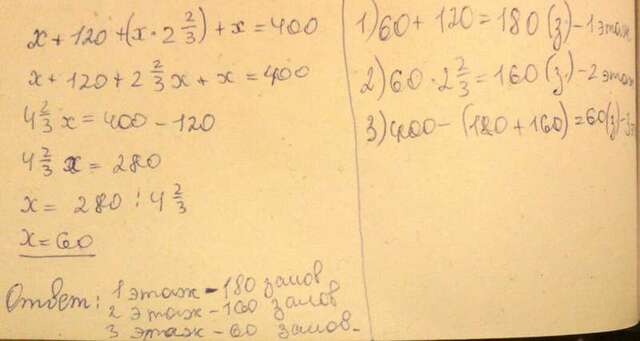 x + 120 + (x · 2 2/3) + x = 400
x + 120 + 2 2/3 x + x = 400
4 2/3 x = 400 - 120
4 2/3 x = 280
x = 280 : 4 2/3
x = 60
Ответ: 1 этаж - 180 залов
2 этаж - 160 залов
3 этаж - 60 залов.
1) 60 + 120 = 180 (з) - 1 этаж
2) 60 · 2 2/3 = 160 (з.) - 2 этаж
3) 400 - (180 + 160) = 60 (з) - 3